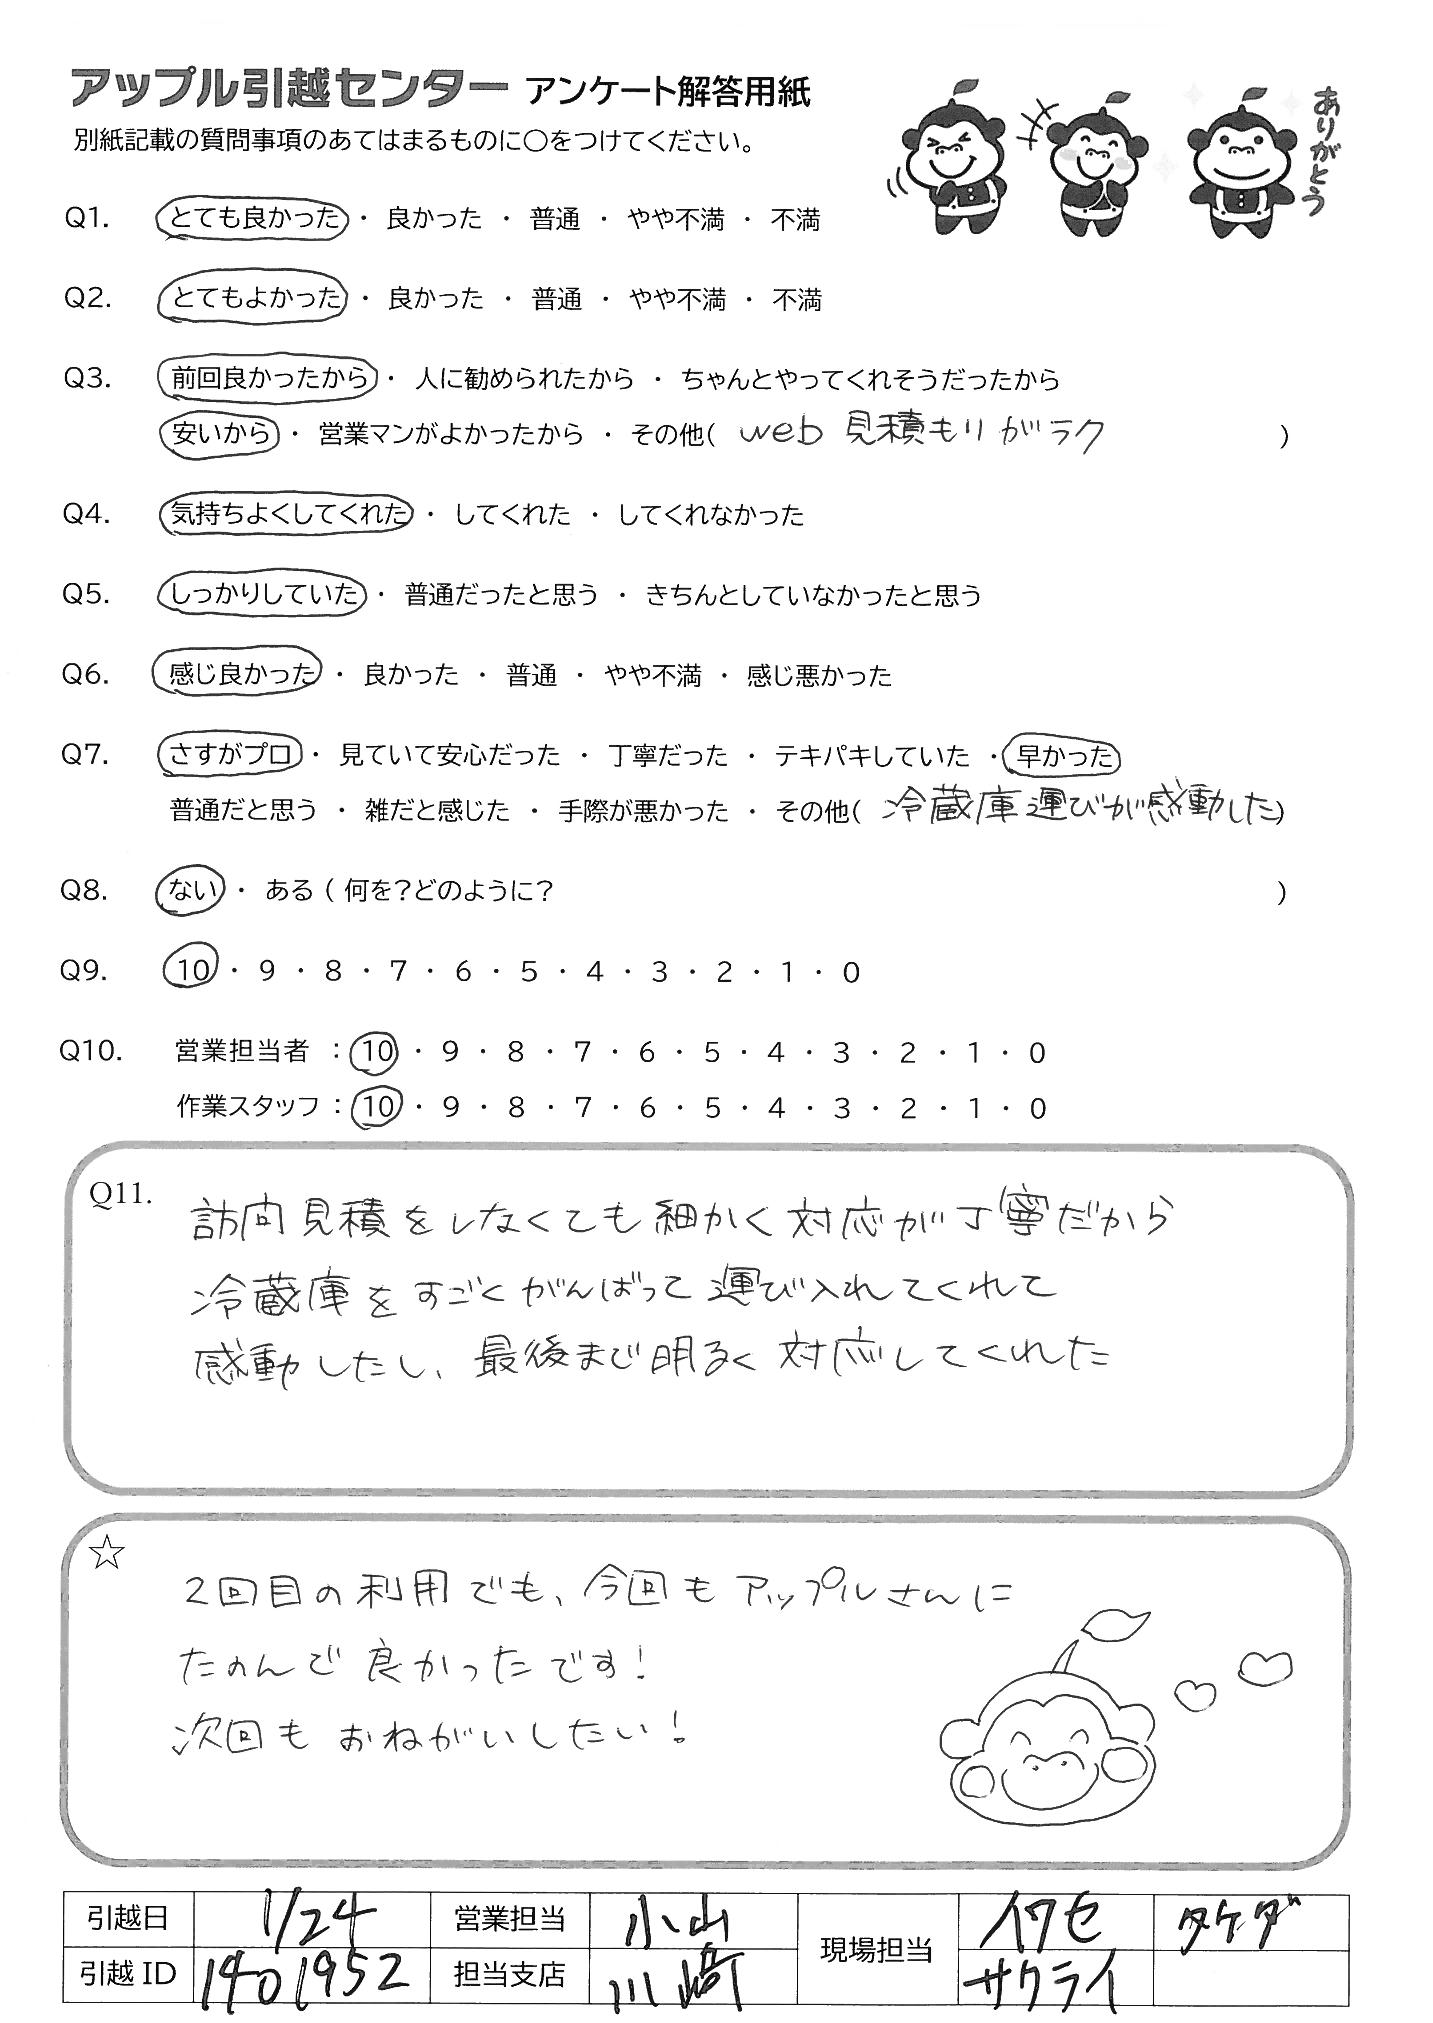 アップル引越センター アンケート解答用紙
別紙記載の質問事項のあてはまるものに〇をつけてください。
ありがとう
Q1. とても良かった ・ 良かった ・ 普通 ・ やや不満 ・ 不満
Q2. とてもよかった ・ 良かった ・ 普通 ・ やや不満 ・ 不満
Q3. 前回良かったから ・ 人に勧められたから ・ ちゃんとやってくれそうだったから
安いから ・ 営業マンがよかったから ・ その他( web 見積もりがラク )
Q4. 気持ちよくしてくれた ・ してくれた ・ してくれなかった
Q5. しっかりしていた ・ 普通だったと思う ・ きちんとしていなかったと思う
Q6. 感じ良かった ・ 良かった ・ 普通 ・ やや不満 ・ 感じ悪かった
Q7. さすがプロ ・ 見ていて安心だった ・ 丁寧だった ・ テキパキしていた ・ 早かった
普通だと思う ・ 雑だと感じた ・ 手際が悪かった ・ その他( 冷蔵庫運びが感動した)
Q8. ない ・ ある ( 何を?どのように? )
Q9. 10 ・ 9 ・ 8 ・ 7 ・ 6 ・ 5 ・ 4 ・ 3 ・ 2 ・ 1 ・ 0
Q10. 営業担当者 : 10 ・ 9 ・ 8 ・ 7 ・ 6 ・ 5 ・ 4 ・ 3 ・ 2 ・ 1 ・ 0
作業スタッフ : 10 ・ 9 ・ 8 ・ 7 ・ 6 ・ 5 ・ 4 ・ 3 ・ 2 ・ 1 ・ 0
Q11. 訪問見積をしなくても細かく対応が丁寧だから
冷蔵庫をすごくがんばって運び入れてくれて
感動したし、最後まで明るく対応してくれた
☆
2回目の利用でも、今回もアップルさんに
たのんで良かったです!
次回もおねがいしたい!
引越日 1/24 営業担当 小山 現場担当 イワセ タケダ
引越ID 1401952 担当支店 川崎 サクライ